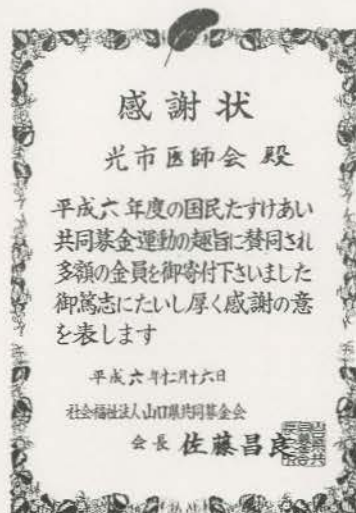 感謝状
光市医師会 殿
平成六年度の国民たすけあい
共同募金運動の趣旨に賛同され
多額の金員を御寄付下さいました
御篤志にたいし厚く感謝の意
を表します
平成六年十二月十六日
社会福祉法人山口県共同募金会
会長 佐藤昌良